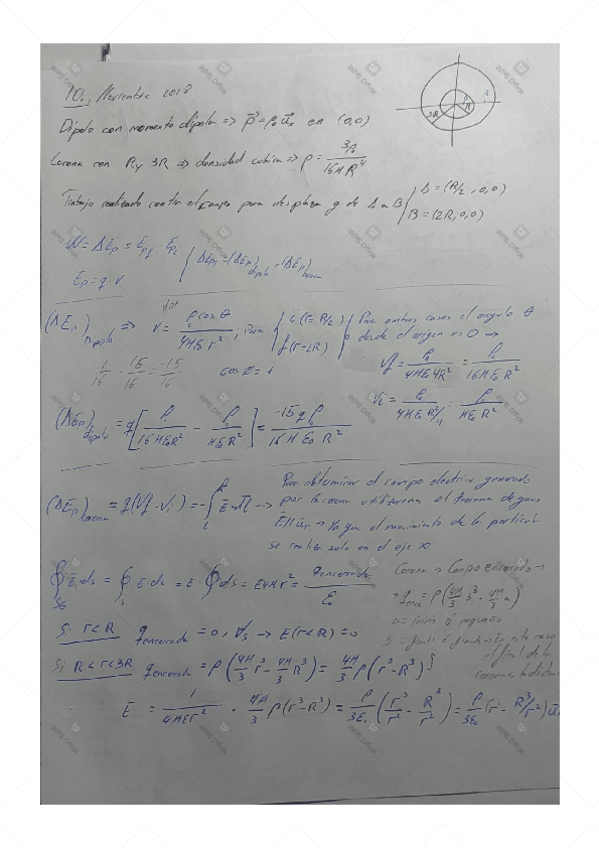 10., Noviembre 2018
Dipolo con momento dipolar => p⃗ = p₀ u⃗ₓ en (0,0)
Corona con R y 3R => densidad cubica => ρ = 3p₀ / 16πR⁴
Trabajo realizado contra el campo para desplazar q de A a B { A = (R/2, 0, 0)
B = (2R, 0, 0)
W = ΔEp = Epf - Epi
Ep = q · V { ΔEp = (ΔEp)dipolo + (ΔEp)corona
(ΔEp)dipolo => V = p cos θ / 4πε₀ r² ; { i (r = R/2) f (r = 2R) } Para ambos casos el angulo θ
desde el origen es 0 →
1/16 - 16/16 = -15/16 cos 0 = 1
Vf = p₀ / 4πε₀ 4R² = p₀ / 16πε₀R²
Vi = p₀ / 4πε₀ R²/4 = p₀ / πε₀R²
(ΔEp)dipolo = q [ p₀ / 16πε₀R² - p₀ / πε₀R² ] = -15 q p₀ / 16πε₀R²
(ΔEp)corona = q (Vf - Vi) = - ∫ E⃗ · dl⃗
Para determinar el campo electrico generado
por la corona utilizamos el teorema de gauss
Ya que el movimiento de la particula
se realiza solo en el eje x
∮ E⃗ · ds = ∮ E · ds = E · ∮ ds = E 4πr² = q encerrada / ε₀
Corona → Campo
q enc = ρ (4π/3 b³ - 4π/3 a)
a = pequeño
Si r<R q encerrada = 0, → E(r<R) = 0
Si R<r<3R q encerrada = ρ (4π/3 r³ - 4π/3 R³) = 4π/3 ρ (r³ - R³)
E = 1 / 4πεr² · 4π/3 ρ (r³ - R³) = ρ / 3ε₀ (r³/r² - R³/r²) = ρ / 3ε₀ (r - R³/r²) u⃗